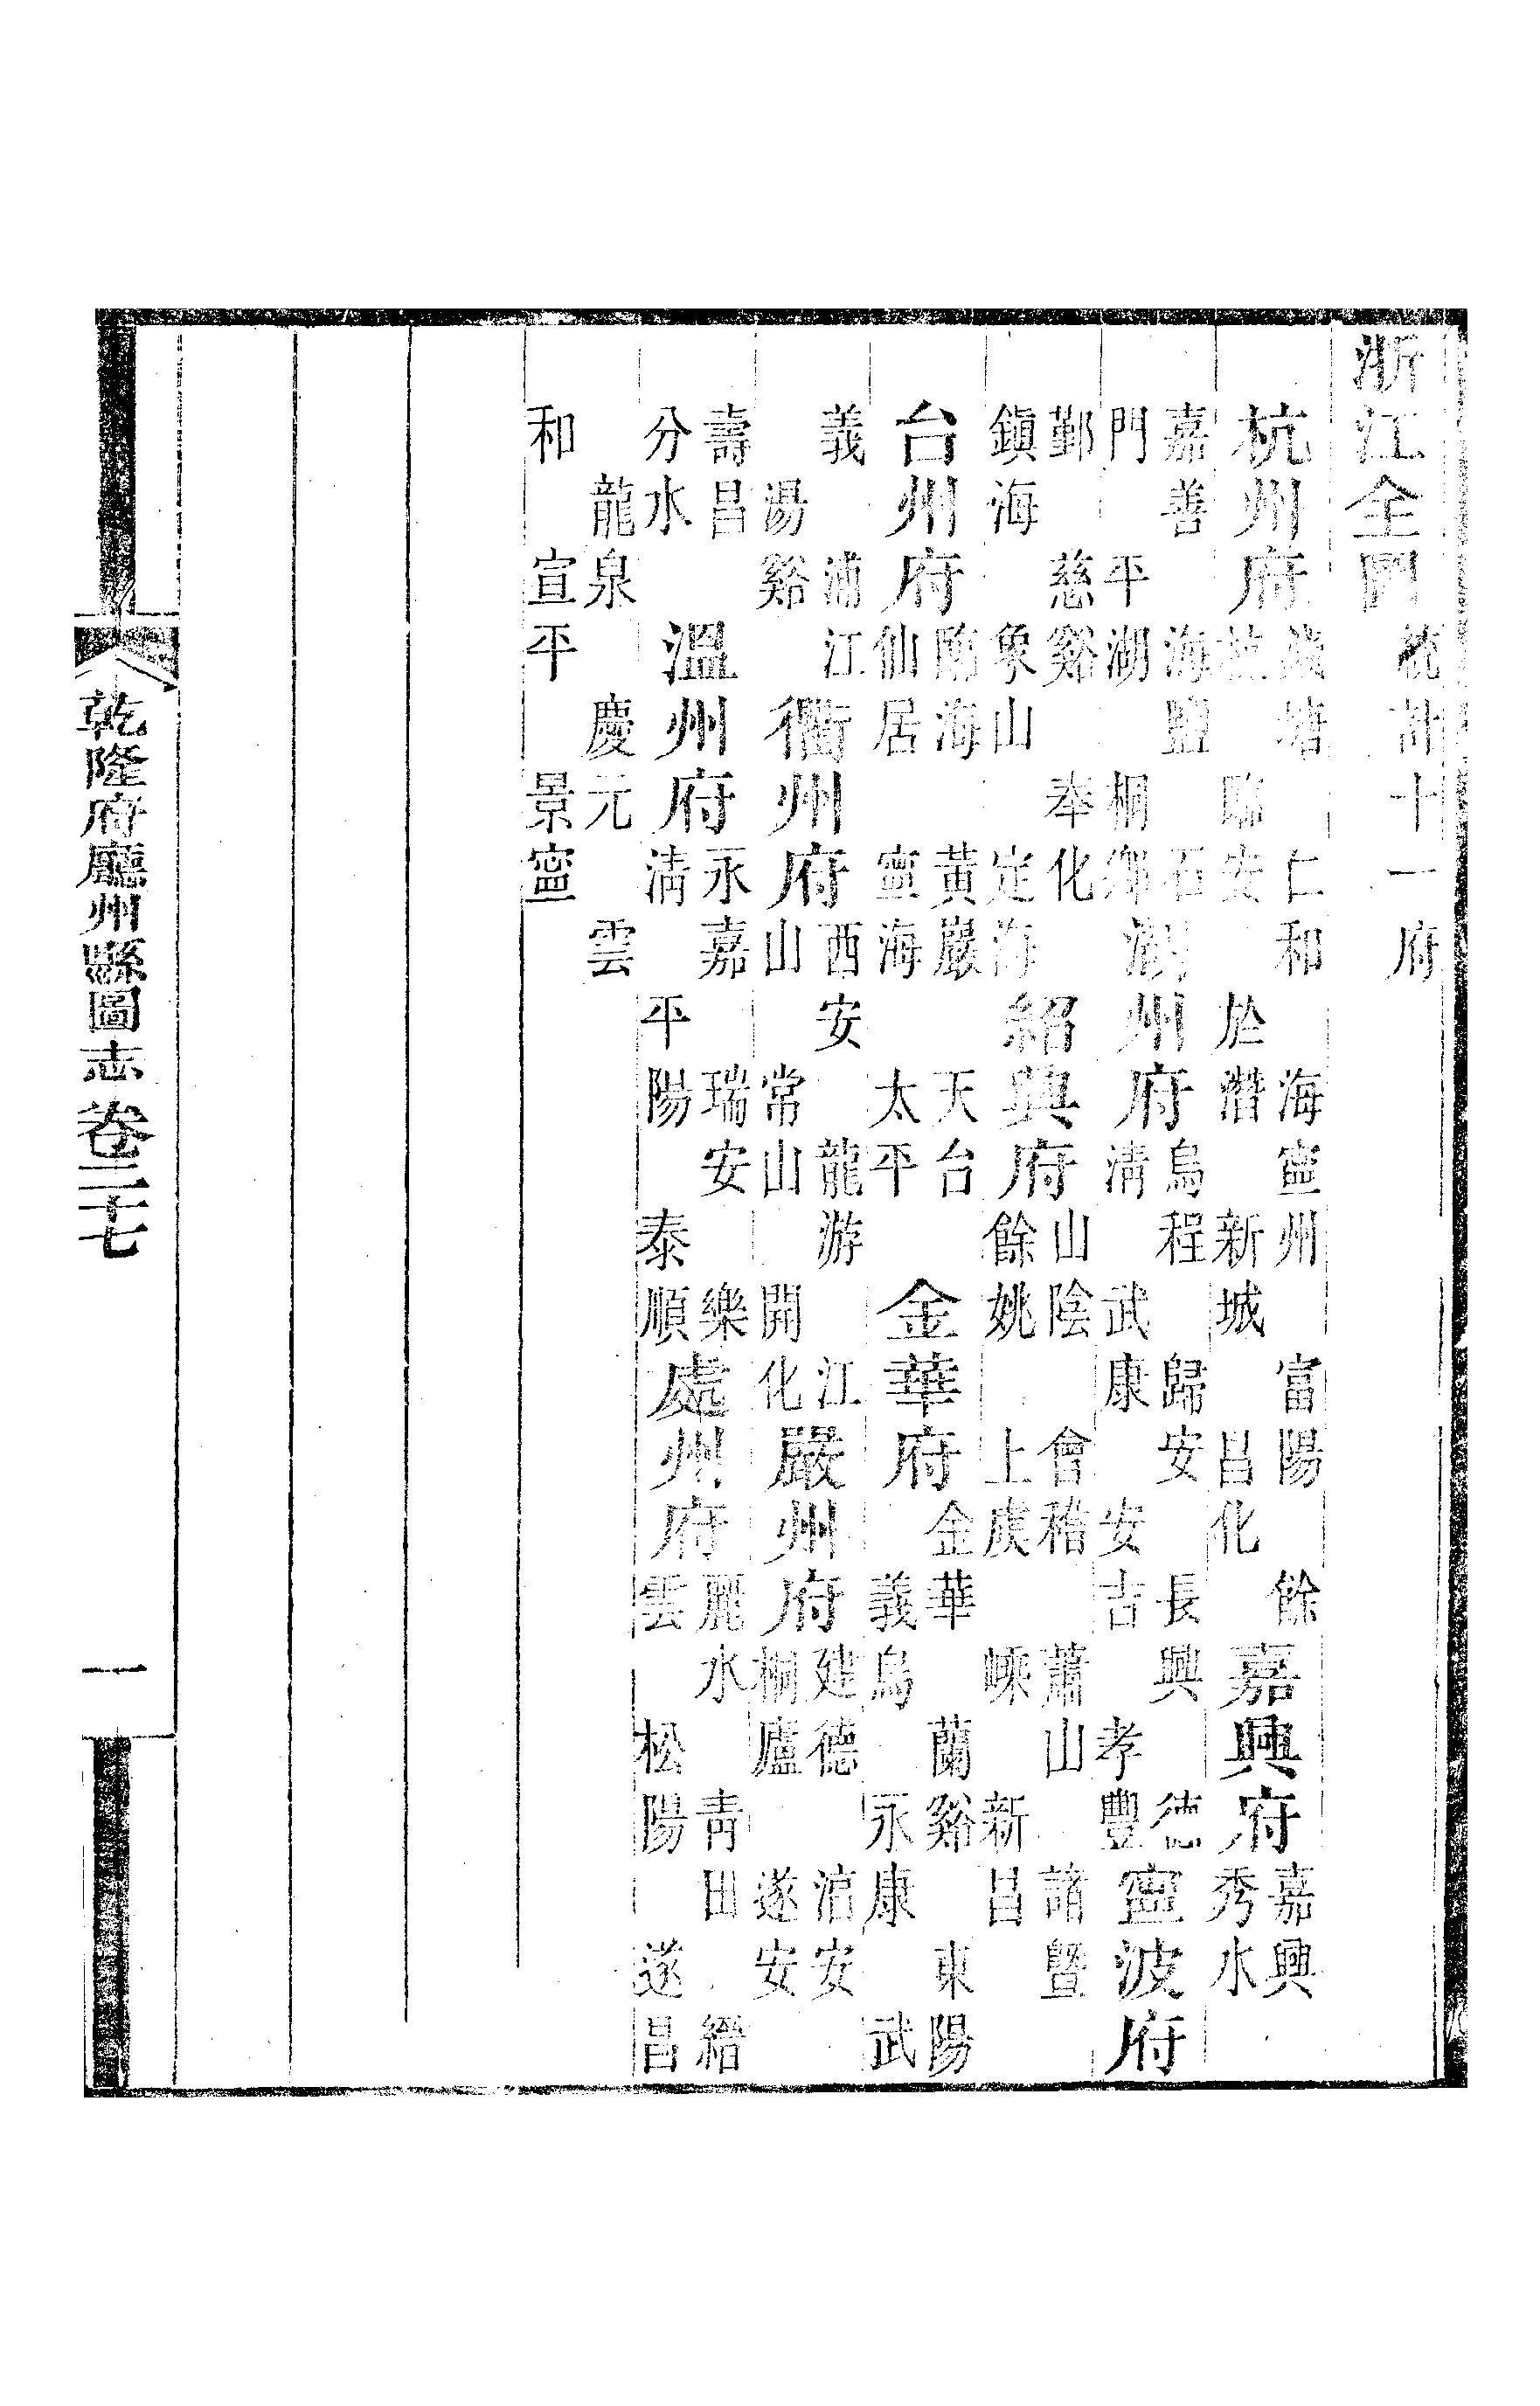 浙江全圖統計十一府
杭州府錢塘仁和海寧州富陽餘杭臨安於潛新城昌化嘉興府嘉興秀水
嘉善海鹽石門平湖桐鄉湖州府烏程歸安長興德清武康安吉孝豐寧波府
鄞慈谿奉化鎮海象山定海紹興府山陰會稽蕭山諸暨餘姚上虞嵊新昌
台州府臨海黃巖天台仙居寧海太平金華府金華蘭谿東陽義烏永康武
義浦江湯谿衢州府西安龍游江山常山開化嚴州府建德湻安桐廬遂安
壽昌分水溫州府永嘉瑞安樂清平陽泰順處州府麗水青田縉雲松陽遂昌
龍泉慶元雲和宣平景寧
乾隆府廳州縣圖志卷二十七
一